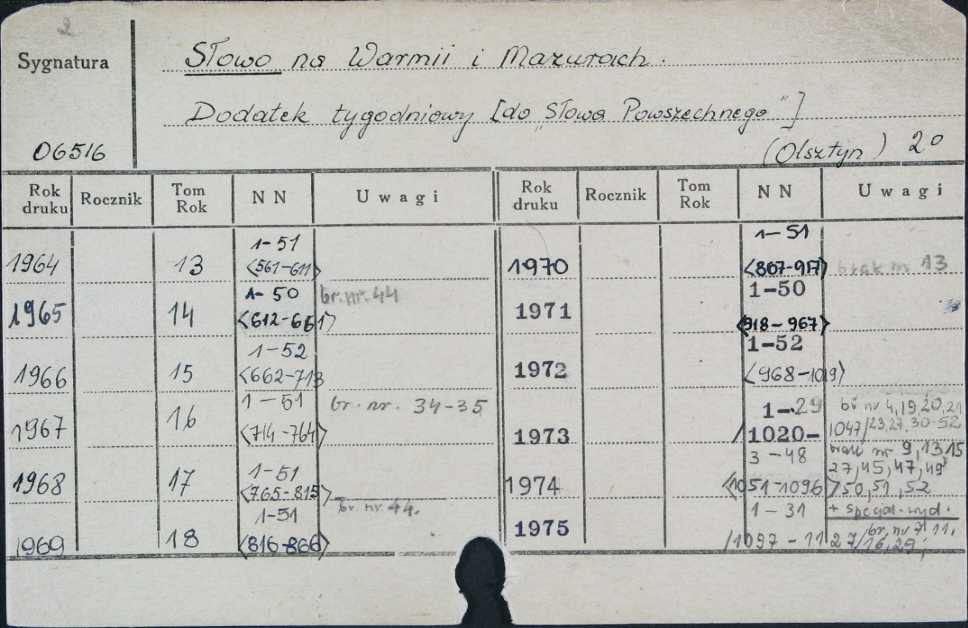 2
Sygnatura
Słowo na Warmii i Mazurach.
Dodatek tygodniowy [do „Słowa Powszechnego"]
06516
(Olsztyn) 2°
Rok druku Rocznik Tom Rok NN Uwagi Rok druku Rocznik Tom Rok NN Uwagi
1964 13 1-51 <561-611>
1965 14 1-50 <612-661> br. nr. 44
1966 15 1-52 <662-713
1967 16 1-51 <714-764> br. nr. 34-35
1968 17 1-51 <765-815>
1969 18 1-51 <816-866> br. nr. 44.
1970 1-51 <867-917> brak nr 13
1971 1-50 <918-967>
1972 1-52 <968-1019>
1973 1-29 /1020-1047/ br nr 4,19 20,21 23,27,30-52
1974 3-48 <1051-1096> brak nr 9,13 15 27,45,47,49 50,51,52
1975 1-31 /1097-1127/ + specjal. wyd. br. nr 7 11, 16,29,